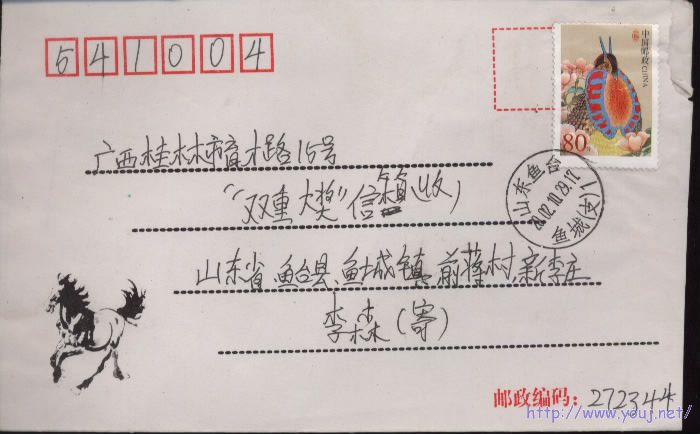 541004
中国邮政 CHINA
80分
山东鱼台
2002.10.29.17
鱼城(支)
广西桂林市育才路15号
“双重大奖”信箱(收)
山东省鱼台县鱼城镇前蒋村新李庄
李森(寄)
邮政编码:272344
http://www.youj.net/